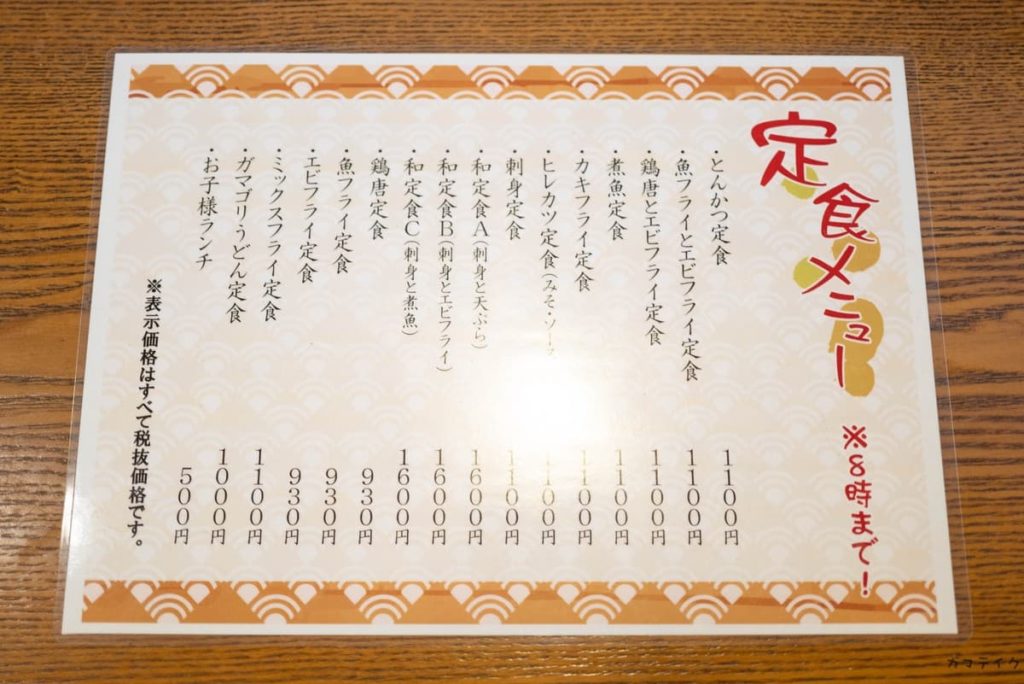 定食メニュー ※8時まで!
・とんかつ定食 1100円
・魚フライとエビフライ定食 1100円
・鶏唐とエビフライ定食 1100円
・煮魚定食 1100円
・カキフライ定食 1100円
・ヒレカツ定食(みそ・ソー 1100円
・刺身定食 1100円
・和定食A(刺身と天ぷら) 1600円
・和定食B(刺身とエビフライ) 1600円
・和定食C(刺身と煮魚) 1600円
・鶏唐定食 930円
・魚フライ定食 930円
・エビフライ定食 930円
・ミックスフライ定食 1100円
・ガマゴリ・うどん定食 1000円
・お子様ランチ 500円
※表示価格はすべて税抜価格です。